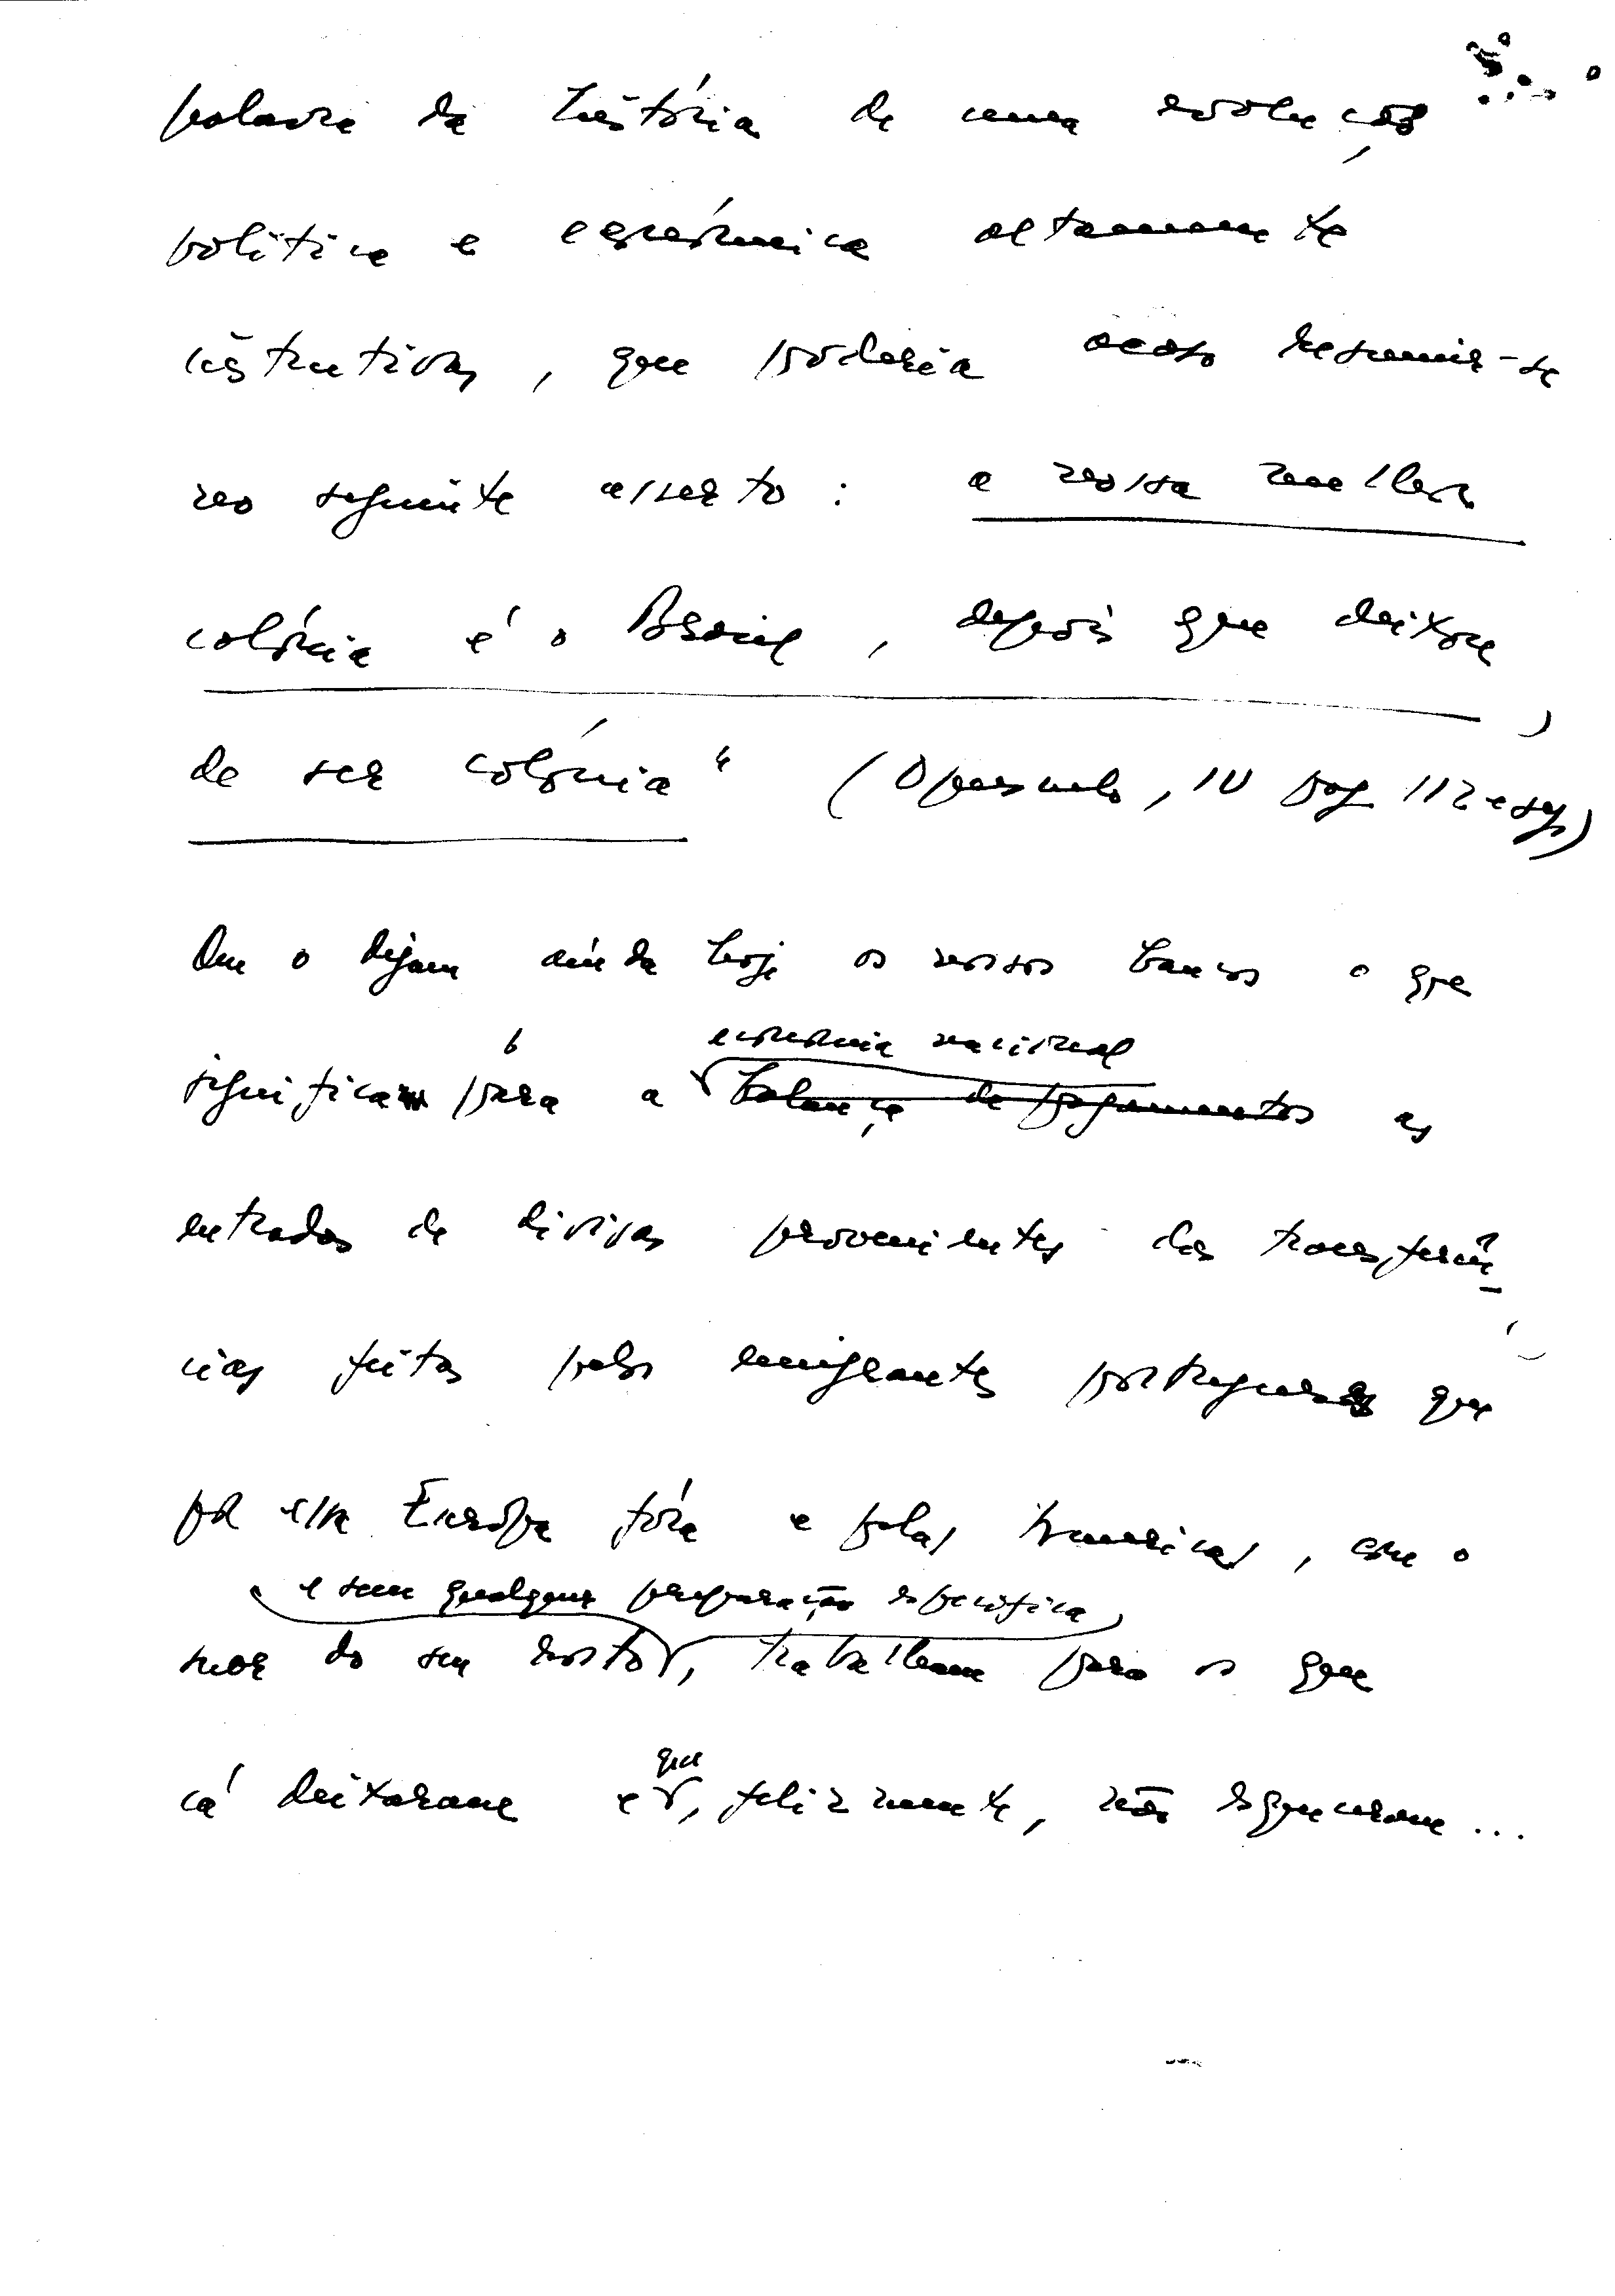 palavra da história de uma evolução
política e económica altamente
instrutiva, que poderia acaso resumir-se
no seguinte asserto: a nossa melhor
colónia é o Brasil, depois que deixou
de ser colónia" (Opusculo, IV pag 112 e seg)
Que o digam ainda hoje os nossos bancos o que
economia nacional
significam para a balança de pagamentos as
entradas de divisas provenientes das transferên-
cias feitas pelos emigrantes portugueses que
por essa Europa fóra e pelas Americas, com o
e sem qualquer preparação especifica
suor do seu rosto, trabalham para os que
que
cá deixaram e, felizmente, não esqueceram...